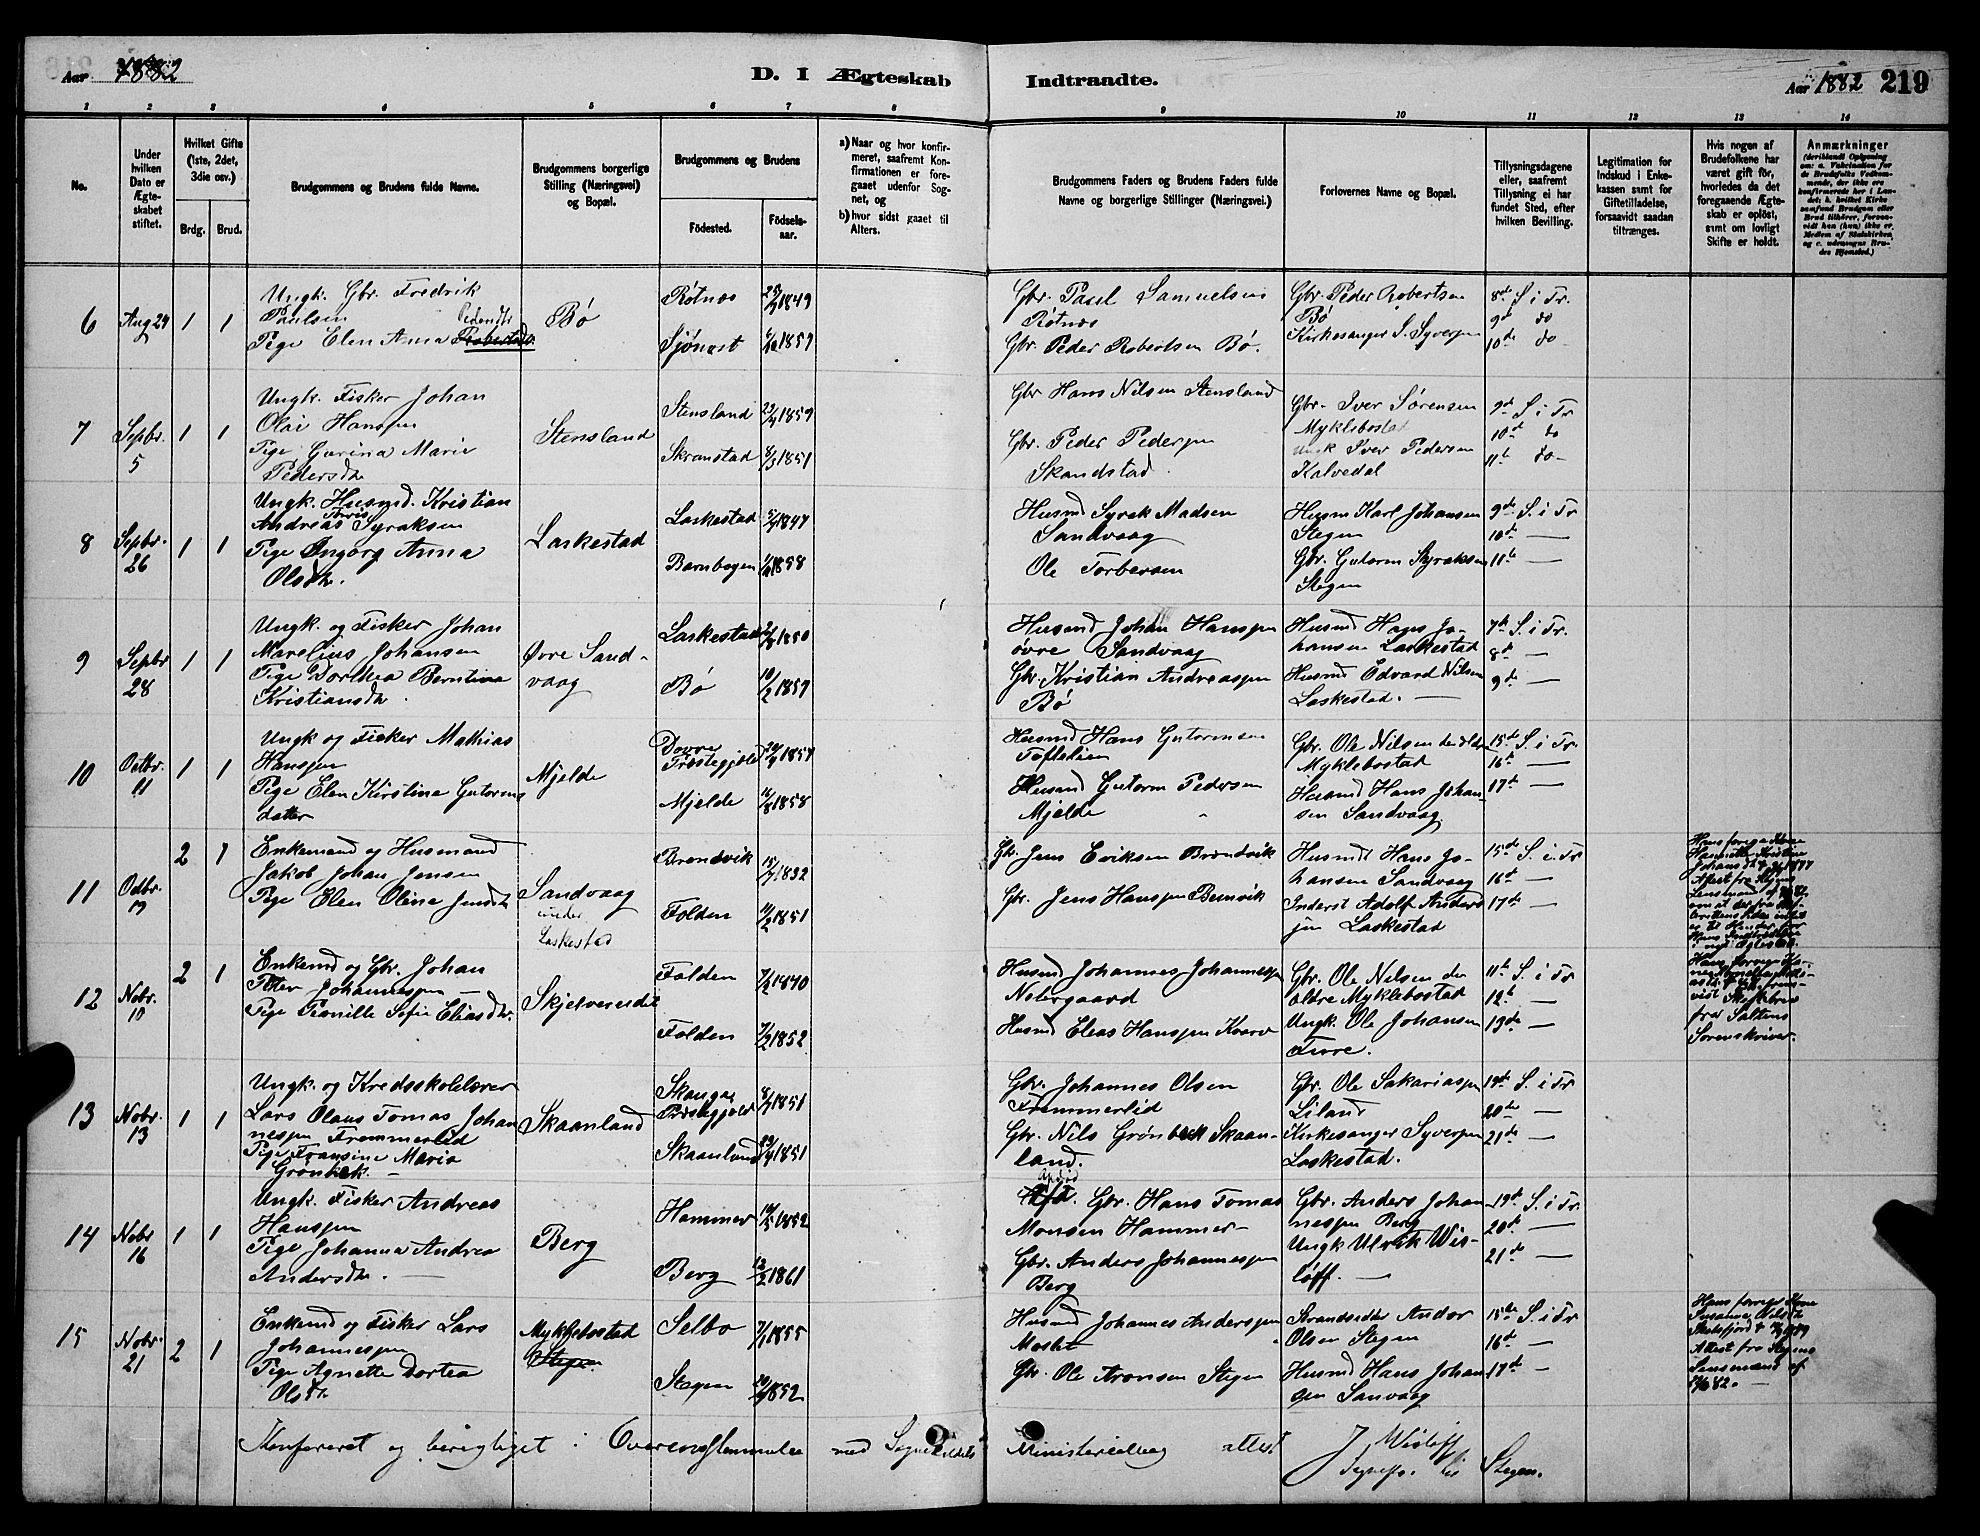 Aar 1882 D. I Ægteskab Indtraadte. Aar 1882 219
1 2 3 4 5 6 7 8 9 10 11 12 13 14
No.
Under hvilken Dato er Ægteskabet stiftet.
Hvilket Gifte (1ste, 2det, 3die osv.)
Brdg. Brud.
Brudgommens og Brudens fulde Navne.
Brudgommens borgerlige Stilling (Næringsvei) og Bopæl.
Brudgommens og Brudens
Fødested. Fødselsaar.
a) Naar og hvor konfirmeret, saafremt Konfirmationen er foregaaet udenfor Sognet, og
b) hvor sidst gaaet til Alters.
Brudgommens Faders og Brudens Faders fulde Navne og borgerlige Stillinger (Næringsvei.)
Forlovernes Navne og Bopæl.
Tillysningsdagene eller, saafremt Tillysning ei har fundet Sted, efter hvilken Bevilling.
Legitimation for Indskud i Enkekassen samt for Giftetilladelse, forsaavidt saadan tiltrænges.
Hvis nogen af Brudefolkene har været gift før, hvorledes da det foregaaende Ægteskab er opløst, samt om lovligt Skifte er holdt.
Anmærkninger
(deriblandt Oplysning om: a. Vakcination for de Brudefolks Vedkommende, der ikke ere konfirmerede her i Landet; b. hvilket Kirkesamfund Brudgom eller Brud tilhører, forsaavidt han (hun) ikke er Medlem af Statskirken og c. udensogns Brudes Hjemsted.)
6 Aug 24 1 1
Ungk. Gbr. Fredrik
Paulsen
Pige Elen Anna Pedersdtr Robertsd
Bø
Røtnes 1849
Sjønest 1859
Gbr. Paul Samuelsen
Røtnes
Gbr. Peder Robertsen Bø.
Gbr. Peder Robertsen
Bø
Kirkesanger S. Syversen
8de S i Tr.
9de do
10de do
7 Sepbr. 5 1 1
Ungk. Fisker Johan
Olai Hansen
Pige Gurina Marie
Pedersdtr
Stensland
Stensland 1859
Skranstad 8/3 1851
Gbr Hans Nilsen Stensland
Gbr. Peder Pedersen
Skandstad.
Gbr. Iver Sørensen
Myklebostad
Ungk Iver Pedersen
Kalvedal
9de S i Tr
10de do
11te do
8 Sepbr. 26 1 1
Ungk. Husmd. Kristian
Andreas Syraksen
Pige Ingborg Anna
Olsdtr.
Laskestad
Laskestad 1847
Barnbogen 1858
Husmd Syrak Madsen
Sandvaag
Ole Torbersen
Husm Karl Johansen
Stegen
Gbr. Gutorm Syraksen
Stegen
9de S. i Tr
10de —
11te —
9 Sepbr 28 1 1
Ungk. og Fisker Johan
Marelius Johansen
Pige Dorthea Berntine
Kristiansdtr.
Øvre Sandvaag
Laskestad 1850
Bø 10/2 1859
Husmd Johan Hansen
øvre Sandvaag
Gbr. Kristian Andreassen
Bø
Husmd Hans Johansen Laskestad
Husmd Edvard Nilsen
Laskestad. —
7de S. i Tr.
8de —
9de —
10 Octbr. 11 1 1
Ungk og Fisker Mathias
Hansen
Pige Elen Kirstine Gutorms
datter
Mjelde
Dovre
Præstegjeld 1857
Mjelde 16/8 1858
Husmd Hans Gutormsen
Toftelien
Husmd Gutorm Pedersen
Mjelde
Gbr. Ole Nilsen den ældre
Myklebostad
Husmd Hans Johansen Sandvaag
15de S. i Tr.
16de —
17de —
11 Octbr. 19 2 1
Enkemand og Husmand
Jakob Johan Jensen
Pige Elen Olina Jensdtr
Sandvaag
under
Laskestad
Brondvik 1832
Folden 11/2 1851
Gbr. Jens Eriksen Brondvik
Gbr. Jens Hansen
Husmd Hans Johansen Sandvaag
Inderst Adolf Andersen Laskestad
15de S. i Tr
16de —
17de —
12 Nobr. 10 2 1
Enkemd og Gbr. Johan
Peter Johannesen —
Pige Pernille Sofie Eliasdtr.
Folden 7/2 1840
Folden 7/2 1852
Husmd Johannes Johannesen
Nobergaard
Husmd Elias Hansen
Gbr. Ole Nilsen den
ældre Myklebostad
Ungk. Ole Johansen
11te S. i Tr
12te —
13de —
fra Saltens
Sorenskriver.
13 Nobr. 13 1 1
Ungk. og Kredsskolelærer
Lars Olaus Tomas Johannesen Fremmerlid
Pige Fransine Maria
Grønbek —
Skaanland
Præstegjeld 8/7 1851
Skaanland 1851
Gbr. Johannes Olsen
Fremmerlid
Gbr. Nils Grønbek Skaanland.
Gbr. Ole Sakariasen
Liland
Kirkesanger Syversen
Laskestad.
19de S. i Tr
20de —
21de —
14 Nobr 16 1 1
Ungk. Fisker Andreas
Hansen
Pige Johanna Andrea
Andersdtr. —
Berg
Hammer 1852
Berg 1861
Gbr. Hans Tomas
Monsen Hammer
Gbr. Anders Johannesen
Berg
Gbr. Anders Johannesen Berg
Ungk Ulrik Wisløff. —
19de S. i Tr.
20de —
21de —
15 Nobr. 21 2 1
Enkemd og Fisker Lars
Johannesen
Pige Agnette Dortea
Olsdtr
Myklebostad
Stegen
Selbo 1855
Stegen 1852
Husmd Johannes Andersen
Moslet
Gbr. Ole Aronsen Stegen
Strandsidder Andor
Olsen Stegen
Husmd Hans Johansen Sanvaag
15de S. i Tr
16de —
17de —
Konfereret og berigtiget i Overensstemmelse med Sognekaldets Ministerialbog attest
J Wisløff
Sognepr. til Stegen.